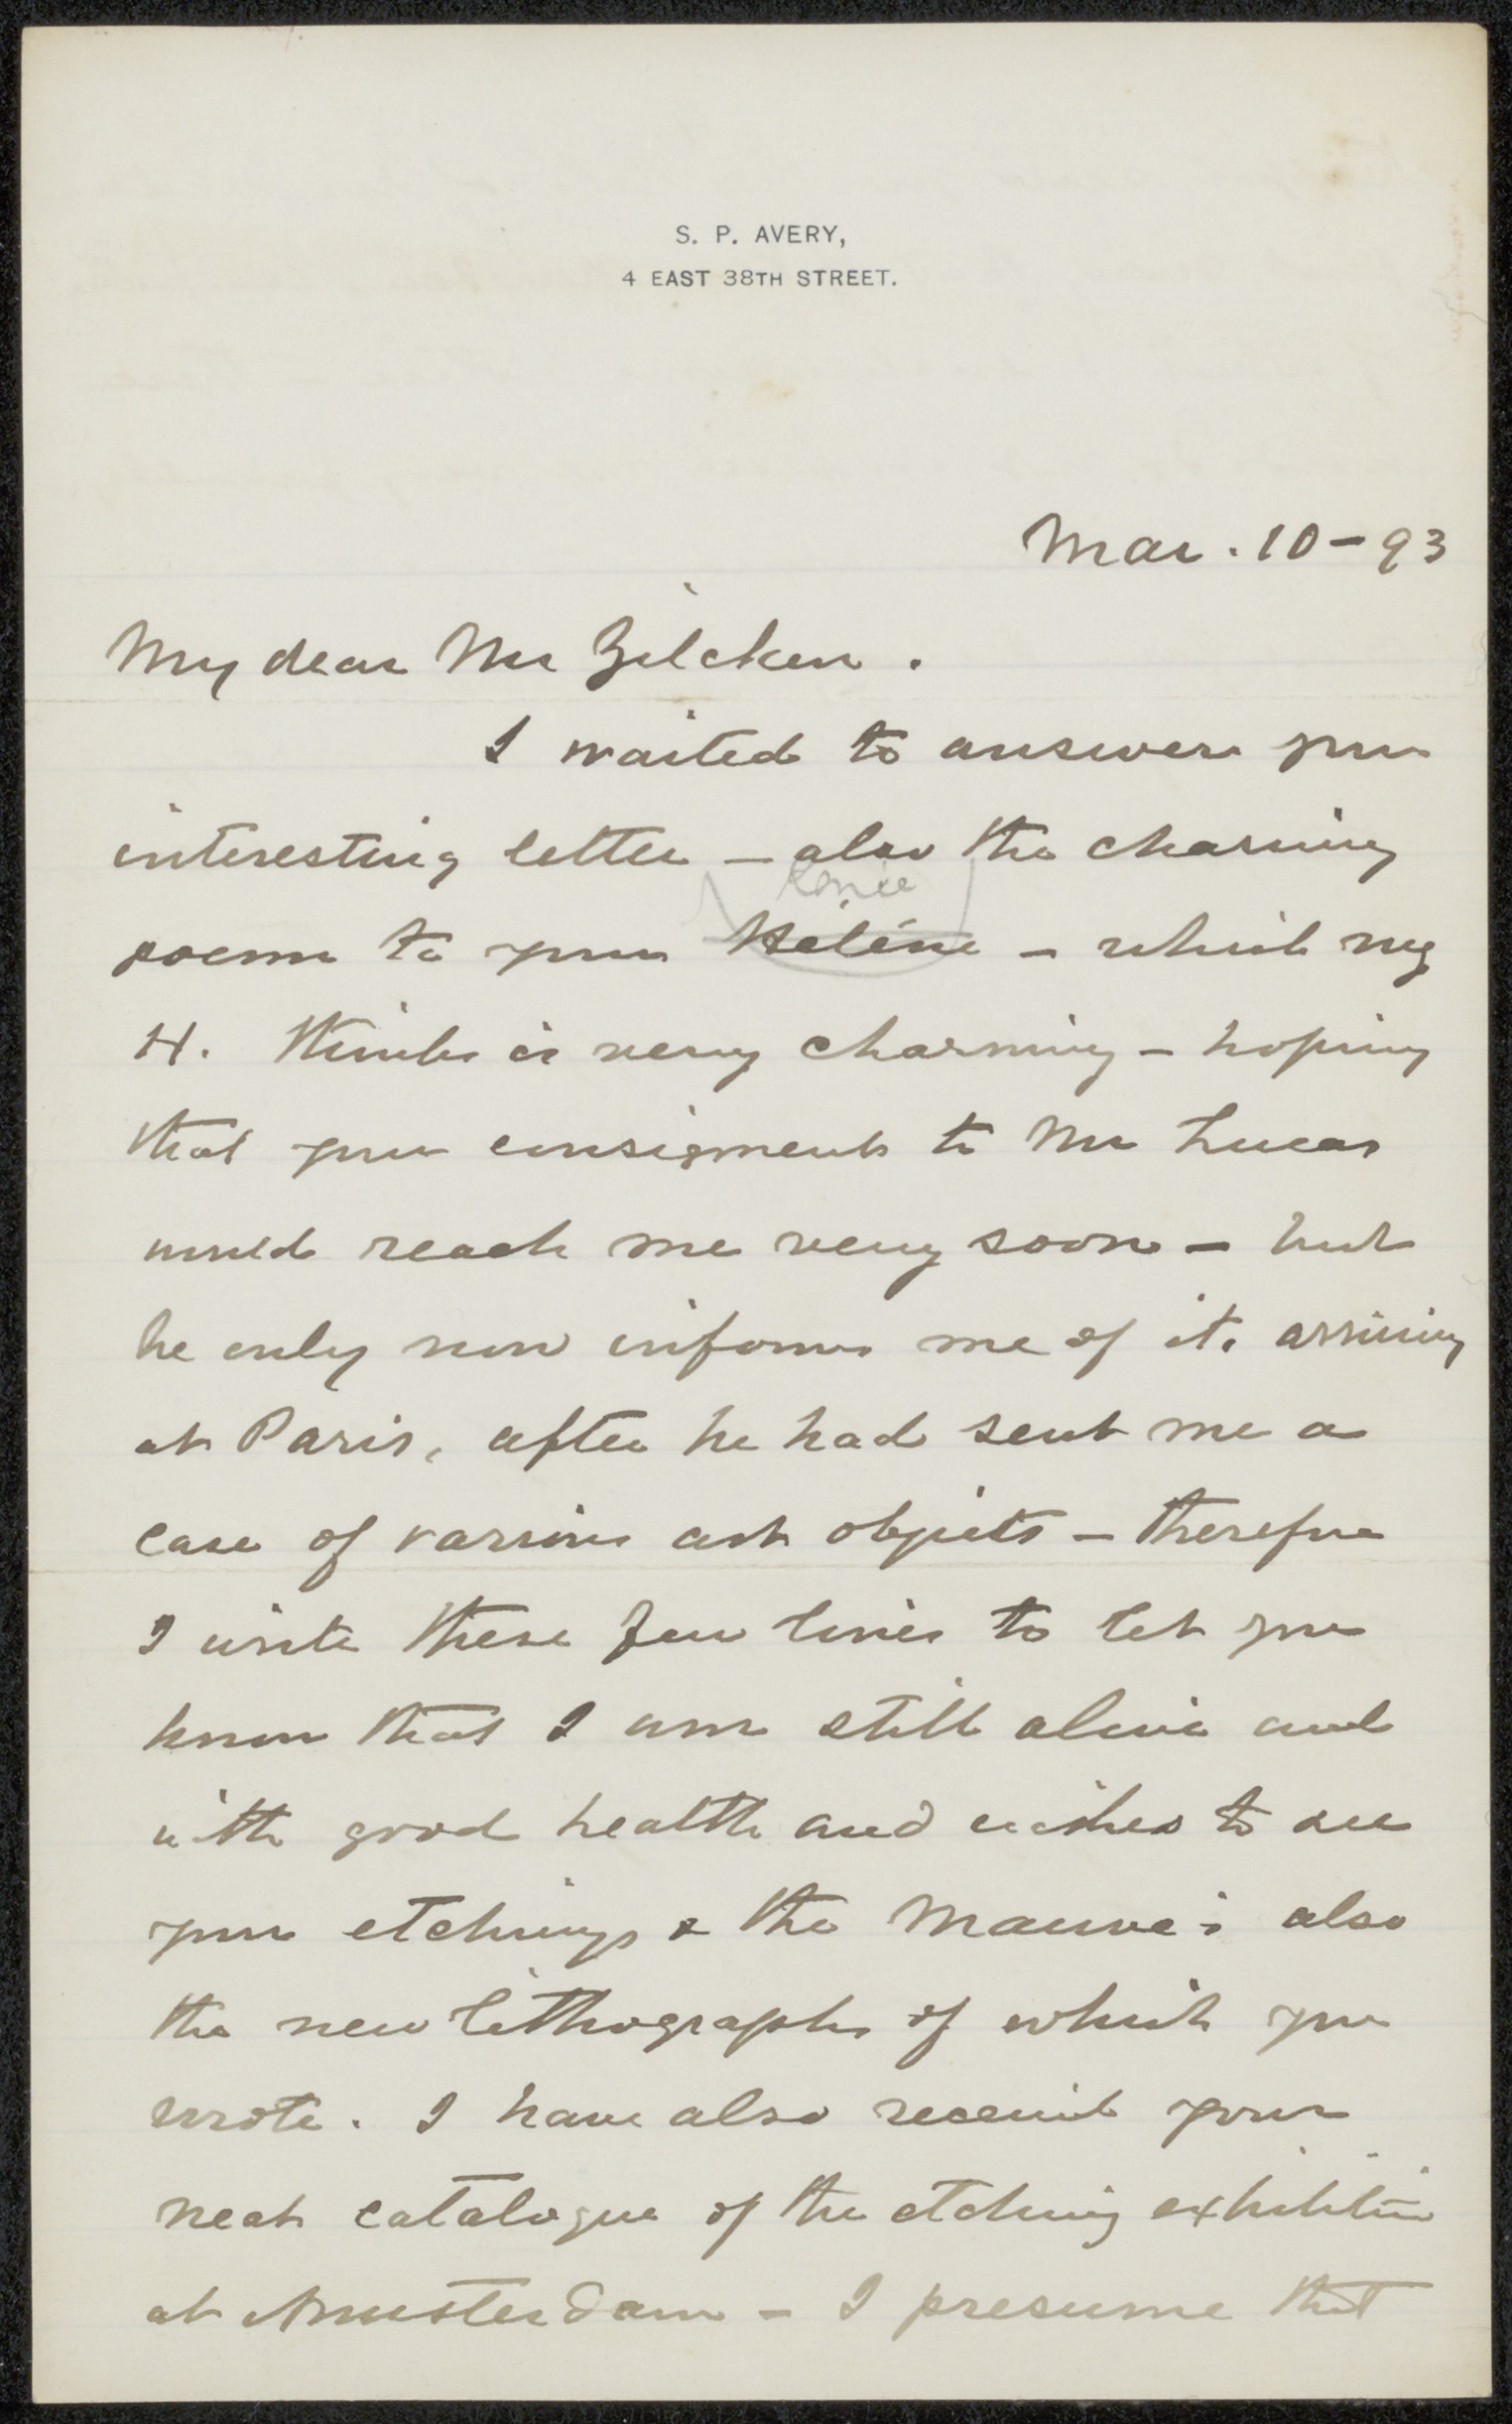 S. P. AVERY,
4 EAST 38TH STREET.
Mar. 10-93
My dear Mr Zilcken.
I waited to answer your
interesting letter – also the charming
Renée
poem to your Heléne – which my
H. thinks is very charming – hoping
that your consigment to Mr Lucas
would reach me very soon – but
he only now informs me of its arriving
at Paris, after he had sent me a
case of various art objects – therefore
I write these few lines to let you
know that I am still alive and
with good health and wishes to see
your etchings & the Mauve; also
the new lithographs of which you
wrote. I have also received your
neat catalogue of the etching exhibition
at Amsterdam – I presume that